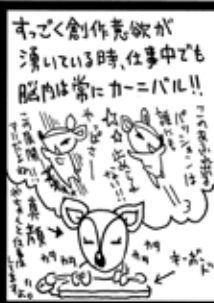 すっごく創作意欲が
湧いている時、仕事中でも
脳内は常にカーニバル!!
パッションは
誰にも
止められ
ない!!
やっばさー
この展開!!
真顔
ちゃんと仕事は
してます。
カタ
カタ
カタ
カタ
キーボード